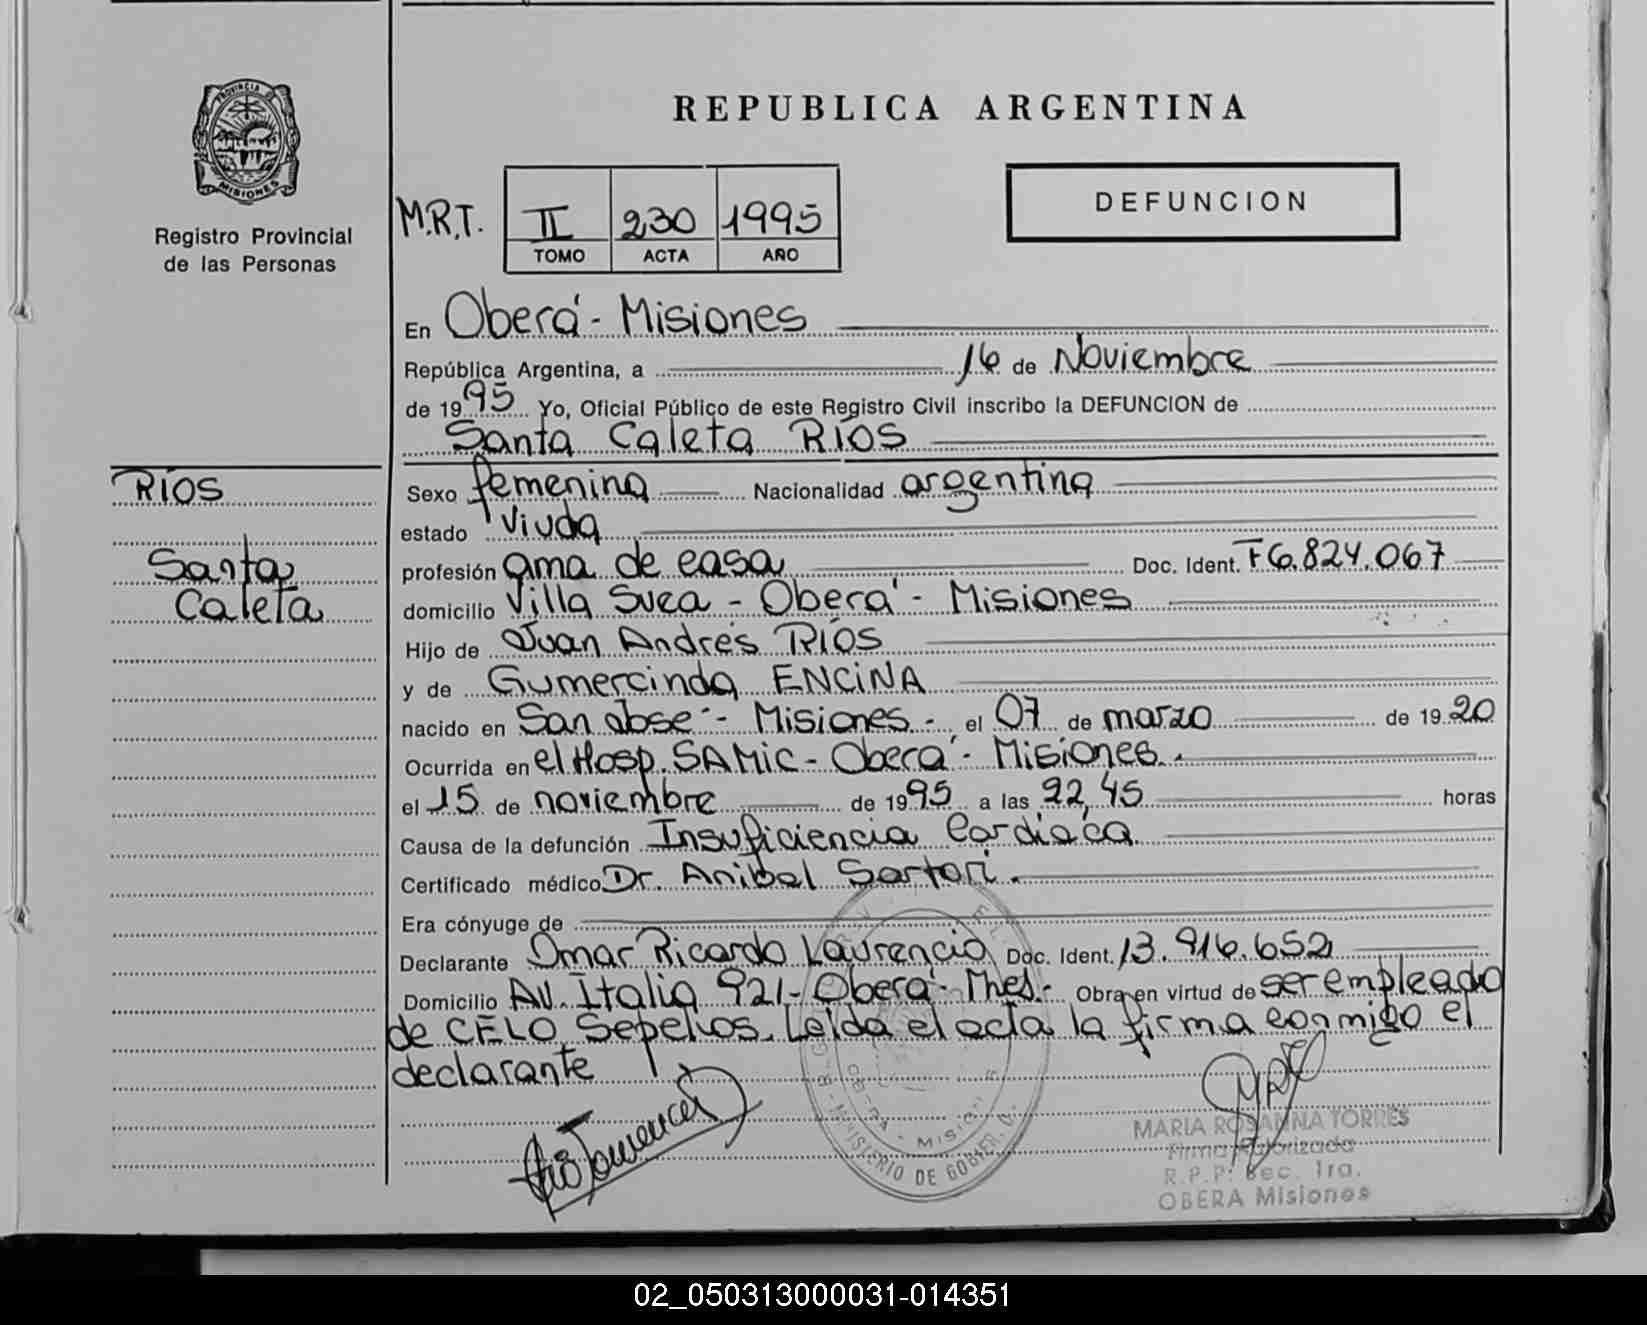 REPUBLICA ARGENTINA
PROVINCIA DE
MISIONES
Registro Provincial
de las Personas
M.R.T. II 230 1995
TOMO ACTA AÑO
DEFUNCION
En Oberá - Misiones
República Argentina, a 16 de Noviembre
de 1995 Yo, Oficial Público de este Registro Civil inscribo la DEFUNCION de
Santa Caleta RÍOS
RÍOS
Santa
Caleta
Sexo femenina Nacionalidad argentina
estado viuda
profesión ama de casa Doc. Ident. F 6.824.067
domicilio Villa Svea - Oberá - Misiones
Hijo de Juan Andrés RÍOS
y de Gumercinda ENCINA
nacido en San José - Misiones - el 07 de marzo de 1920
Ocurrida en el Hosp. SAMIC - Oberá - Misiones.
el 15 de noviembre de 1995 a las 22,45 horas
Causa de la defunción Insuficiencia Cardíaca
Certificado médico Dr. Anibal Sartori.
Era cónyuge de
Declarante Omar Ricardo Laurencio Doc. Ident. 13.916.652
Domicilio Av. Italia 921 - Oberá - Mnes. - Obra en virtud de ser empleado
de CELO Sepelios. Leída el acta la firma conmigo el
declarante
MINISTERIO DE GOBIER
MARIA ROSANNA TORRES
Firma Autorizada
R.P.P. Sec. 1ra.
OBERA Misiones
02_050313000031-014351